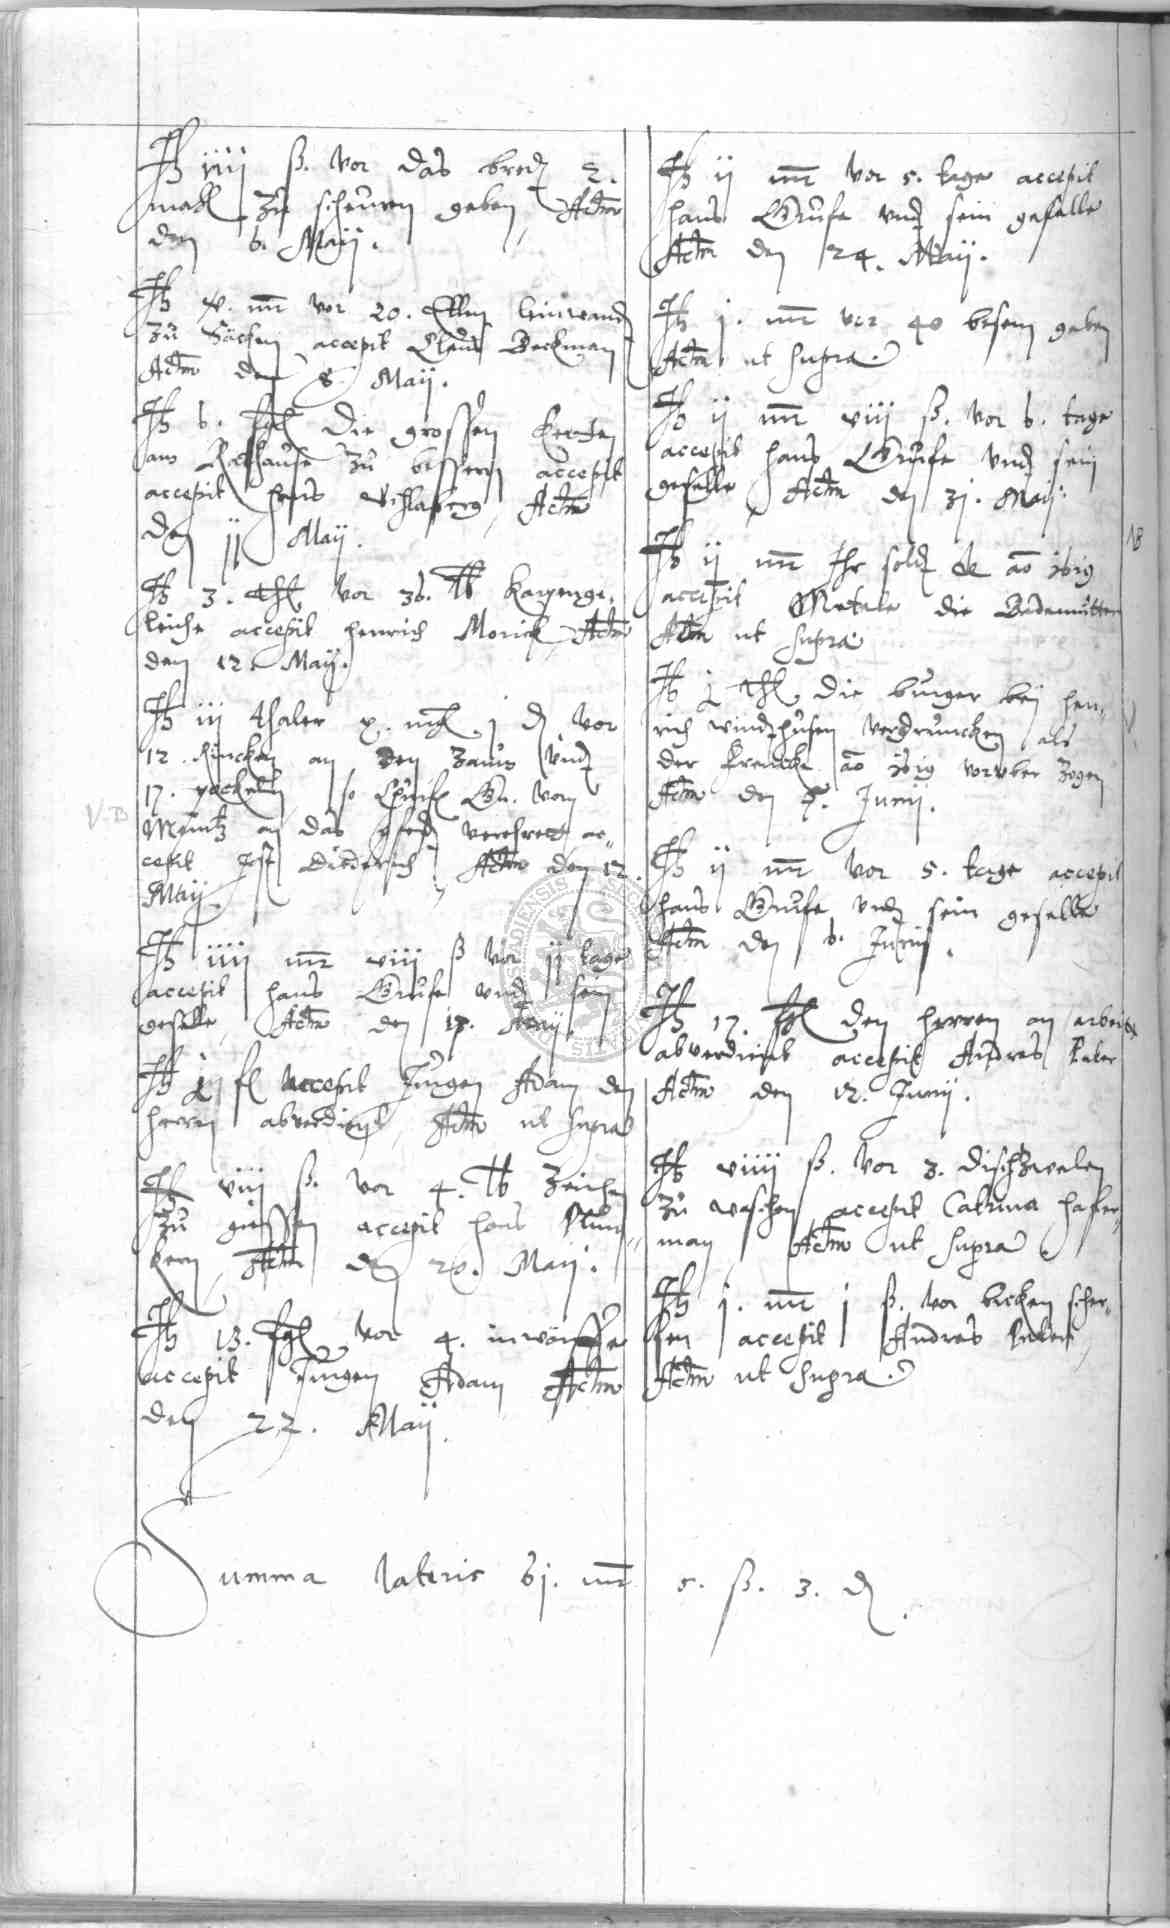 It iiii ß. vor das bredt 2.
mahl zu scheuren geben, Actum
den 6. Maij.
It x. mr vor 20. Ellen leinwandt
zu Säcken accepit Claus Beckman
Actum den 8. Maij.
It 6. fgl die grossen
am Rathause zu bessern accepit
accepit Actum
den jj Maij.
It 3. Thl vor 36. lb karpenge,
leiche accepit Henrich Morich, Actum
den 12. Maij.
It iij thaler x. mgl j d vor
12. Rincken an den Zaun undt
17. so
an das verehret ac,,
cepit Jost Diederich, Actum den 12.
Maij.
It iiii mr viii ß vor jj tage
accepit Hans Grufe undt sein
geselle, Actum den 17. Maij.
It fl accepit Jurgen Adam den
herren abverdient, Actum ut supra
It viii ß. vor 4. lb Zeichen
zu giessen accepit Hans
Actum den 20. Maij.
It 13. fgl vor 4.
accepit Jurgen Adam Actum
den 22. Maij.
It ij mr vor 5. tage accepit
Hans Grufe undt sein geselle
Actum den 24. Maij.
It j. mr vor 40 besem geben
Actum ut supra.
It ij mr viii ß. vor 6. tage
accepit Hans Grufe undt sein
geselle, Actum den 31. Maij.
NB
It ij mr Ihr soldt de ao 1619
accepit Metele die Bademutter
Actum ut supra
It Thl. die burger bej Hen,,
rich Windthusen verdruncken als
der ao 1619 voruber zogen
Actum den 5. Junij.
It ij mr vor 5. tage accepit
Hans Grufe undt sein geselle
Actum den 6. Junij.
It 17. fgl den herren an arbeit
abverdient accepit Andres
Actum den 12. Junij.
It viiii ß. vor 3. dischzwelen
zu waschen accepit Catrina Hafer,,
man, Actum ut supra.
It j. mr j ß. vor bicken scher,,
fen accepit Andres
Actum ut supra.
Summa lateris 61. mr 5. ß. 3. d.